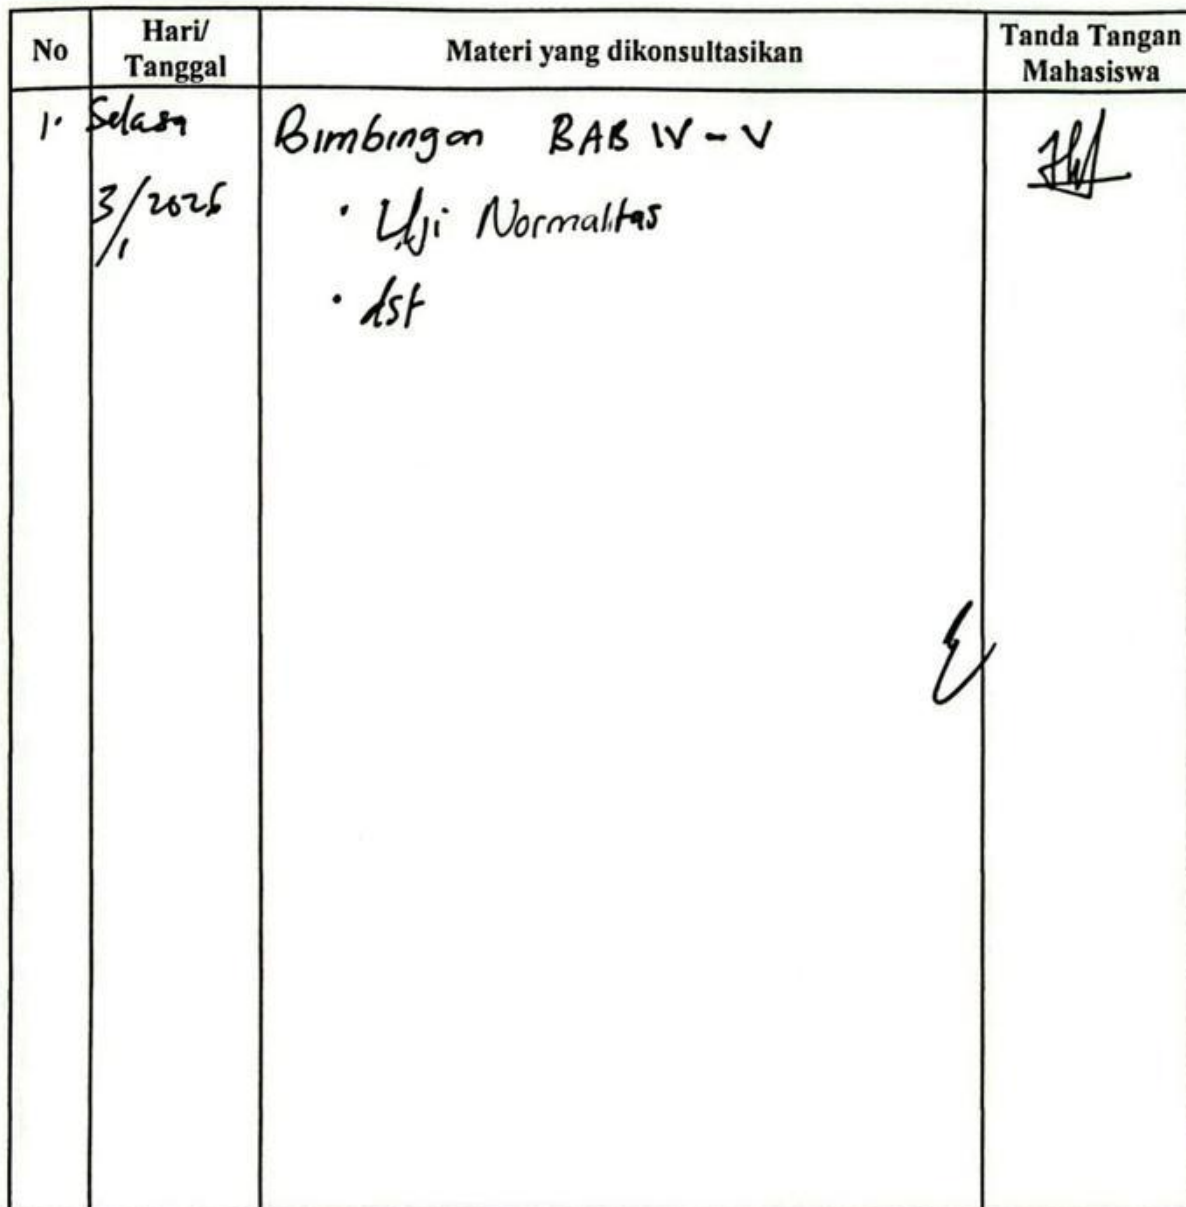 No
Hari/
Tanggal
Materi yang dikonsultasikan
Tanda Tangan
Mahasiswa
1. Selasa
3/2026
/1
Bimbingan BAB IV - V
• Uji Normalitas
• dst